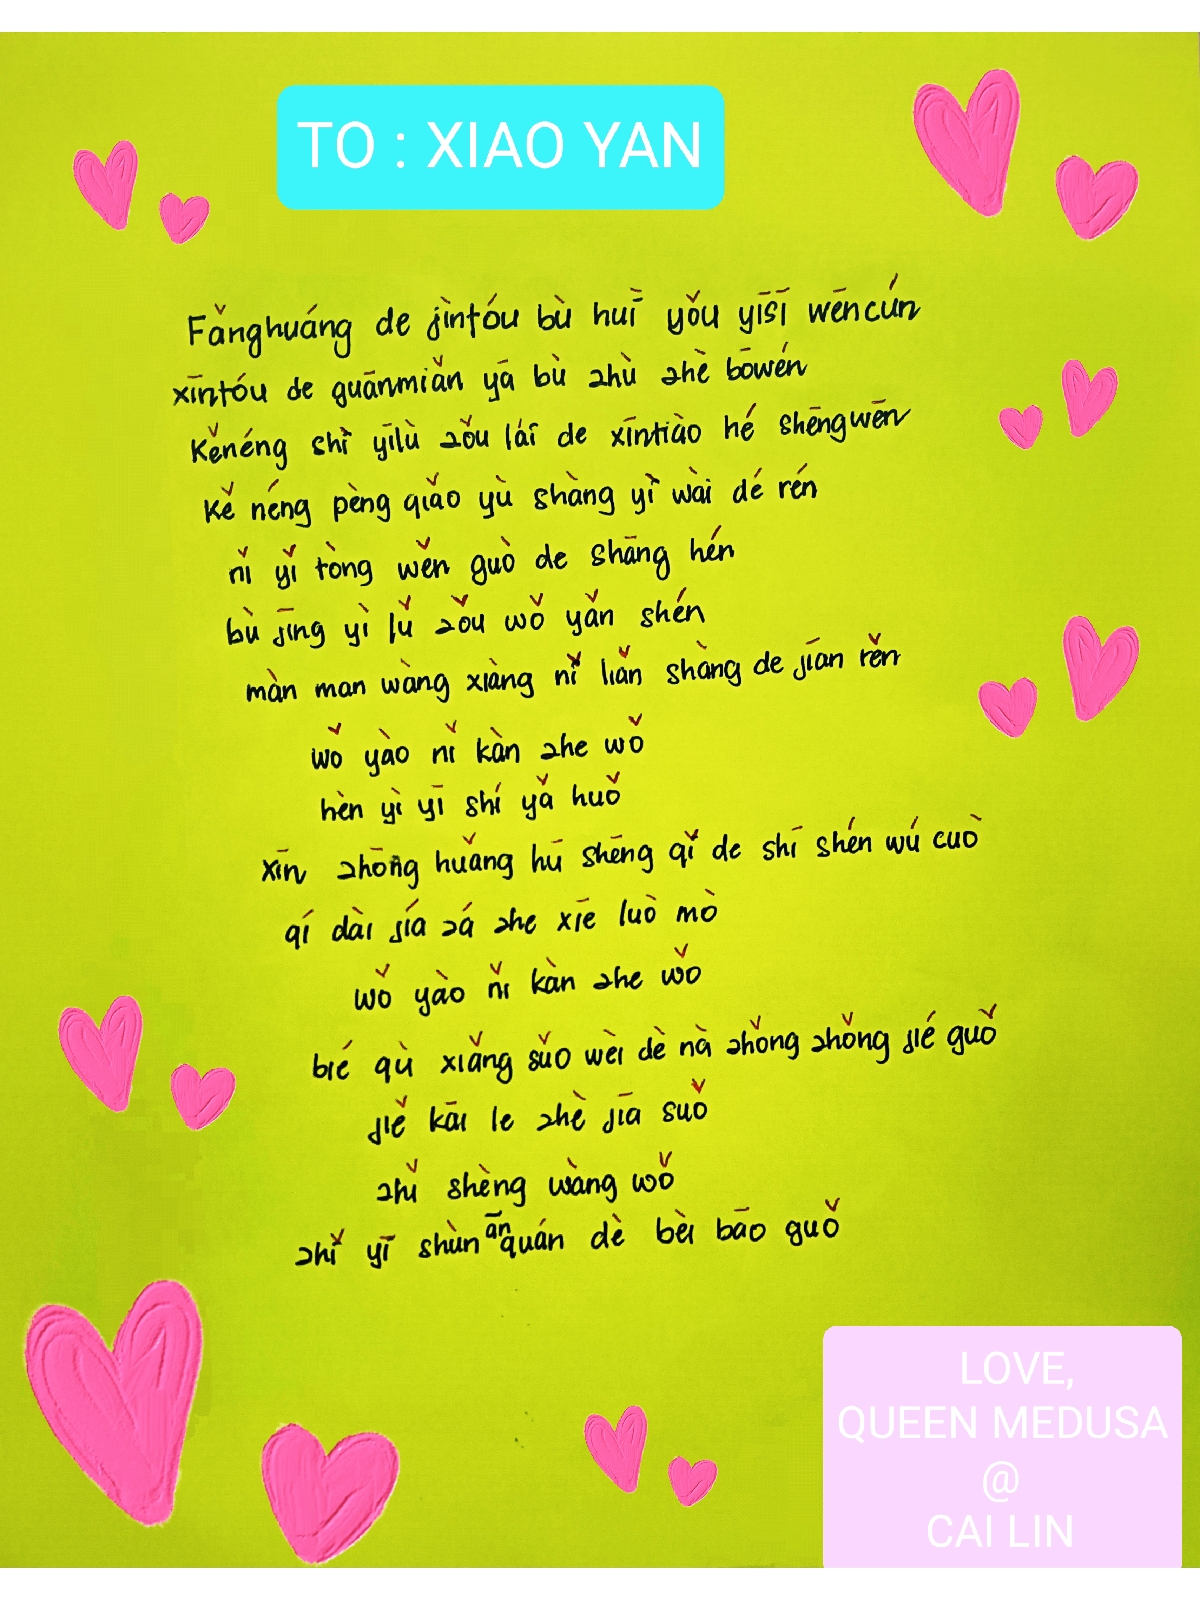 TO : XIAO YAN
Fǎnghuáng de jìntóu bù huī yǒu yīsī wēncún
xīntóu de guānmiǎn yā bù zhù zhè bōwén
Kěnéng shì yīlù zǒu lái de xīntiào hé shēngwēn
kě néng pèng qiǎo yù shàng yì wài dé rén
nǐ yǐ tòng wěn guò de shāng hén
bù jīng yì lǔ zǒu wǒ yǎn shén
màn man wàng xiàng nǐ liǎn shàng de jiān rěn
wǒ yào nǐ kàn zhe wǒ
hèn yì yī shí yǎ huǒ
xīn zhōng huǎng hū shēng qǐ de shī shén wú cuò
qí dài jiá zá zhe xiē luò mò
wǒ yào nǐ kàn zhe wǒ
bié qù xiǎng suǒ wèi dè nà zhǒng zhǒng jié guǒ
jiě kāi le zhè jiā suǒ
zhǐ shèng wàng wǒ
zhǐ yī shùn ān quán dè bèi bāo guǒ
LOVE,
QUEEN MEDUSA
@
CAI LIN